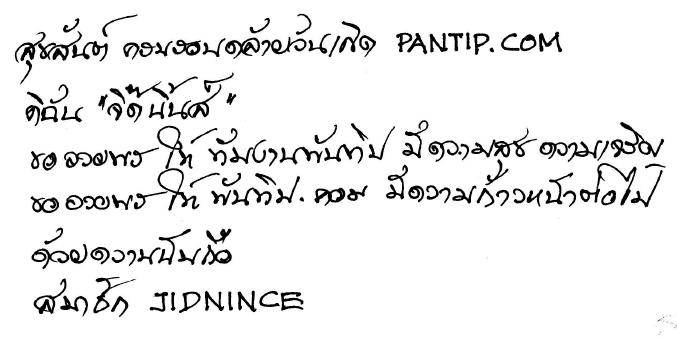 สุขสันต์ ครบรอบคล้ายวันเกิด PANTIP.COM
ดิฉัน "จิ๊ดนิ้นส์"
ขออวยพร ให้ ทีมงานพันทิป มีความสุข ความเจริญ
ขออวยพร ให้ พันทิป.คอม มีความก้าวหน้าต่อไป
ด้วยความนับถือ
สมาชิก JIDNINCE